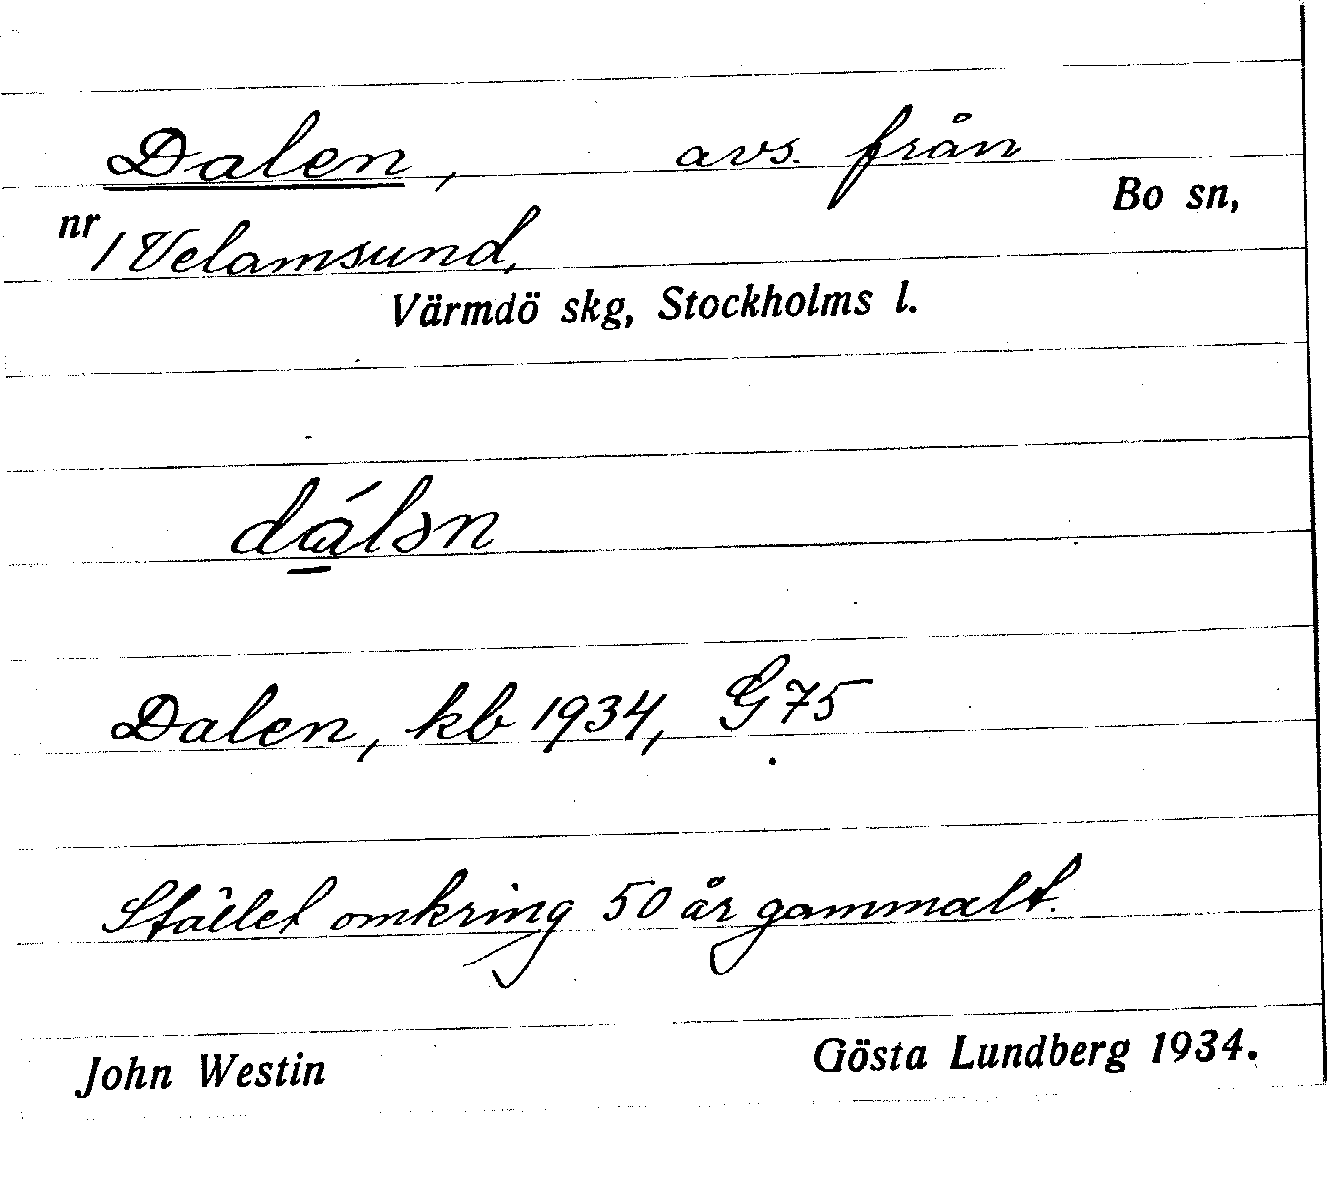 Dalen, avs. från
Bo sn,
nr 1 Velamsund,
Värmdö skg, Stockholms l.
dά̲lən
Dalen, kb 1934, G 75
Stället omkring 50 år gammalt.
John Westin Gösta Lundberg 1934.